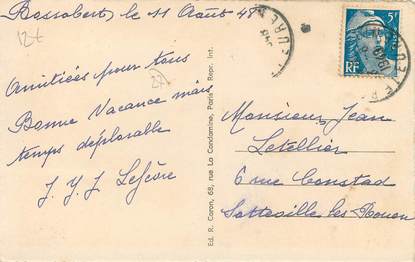 Bassobert, le 11 Août 48
12t
Amitiées pour tous
Bonne Vacance mais
temps déplorable
J. Y. J Lefèvre
Ed. R. Caron, 68, rue La Condamine, Paris. Repr. Int.
5F
RF
Monsieur Jean
Letellier
6 rue Constad
Sotteville les Rouen